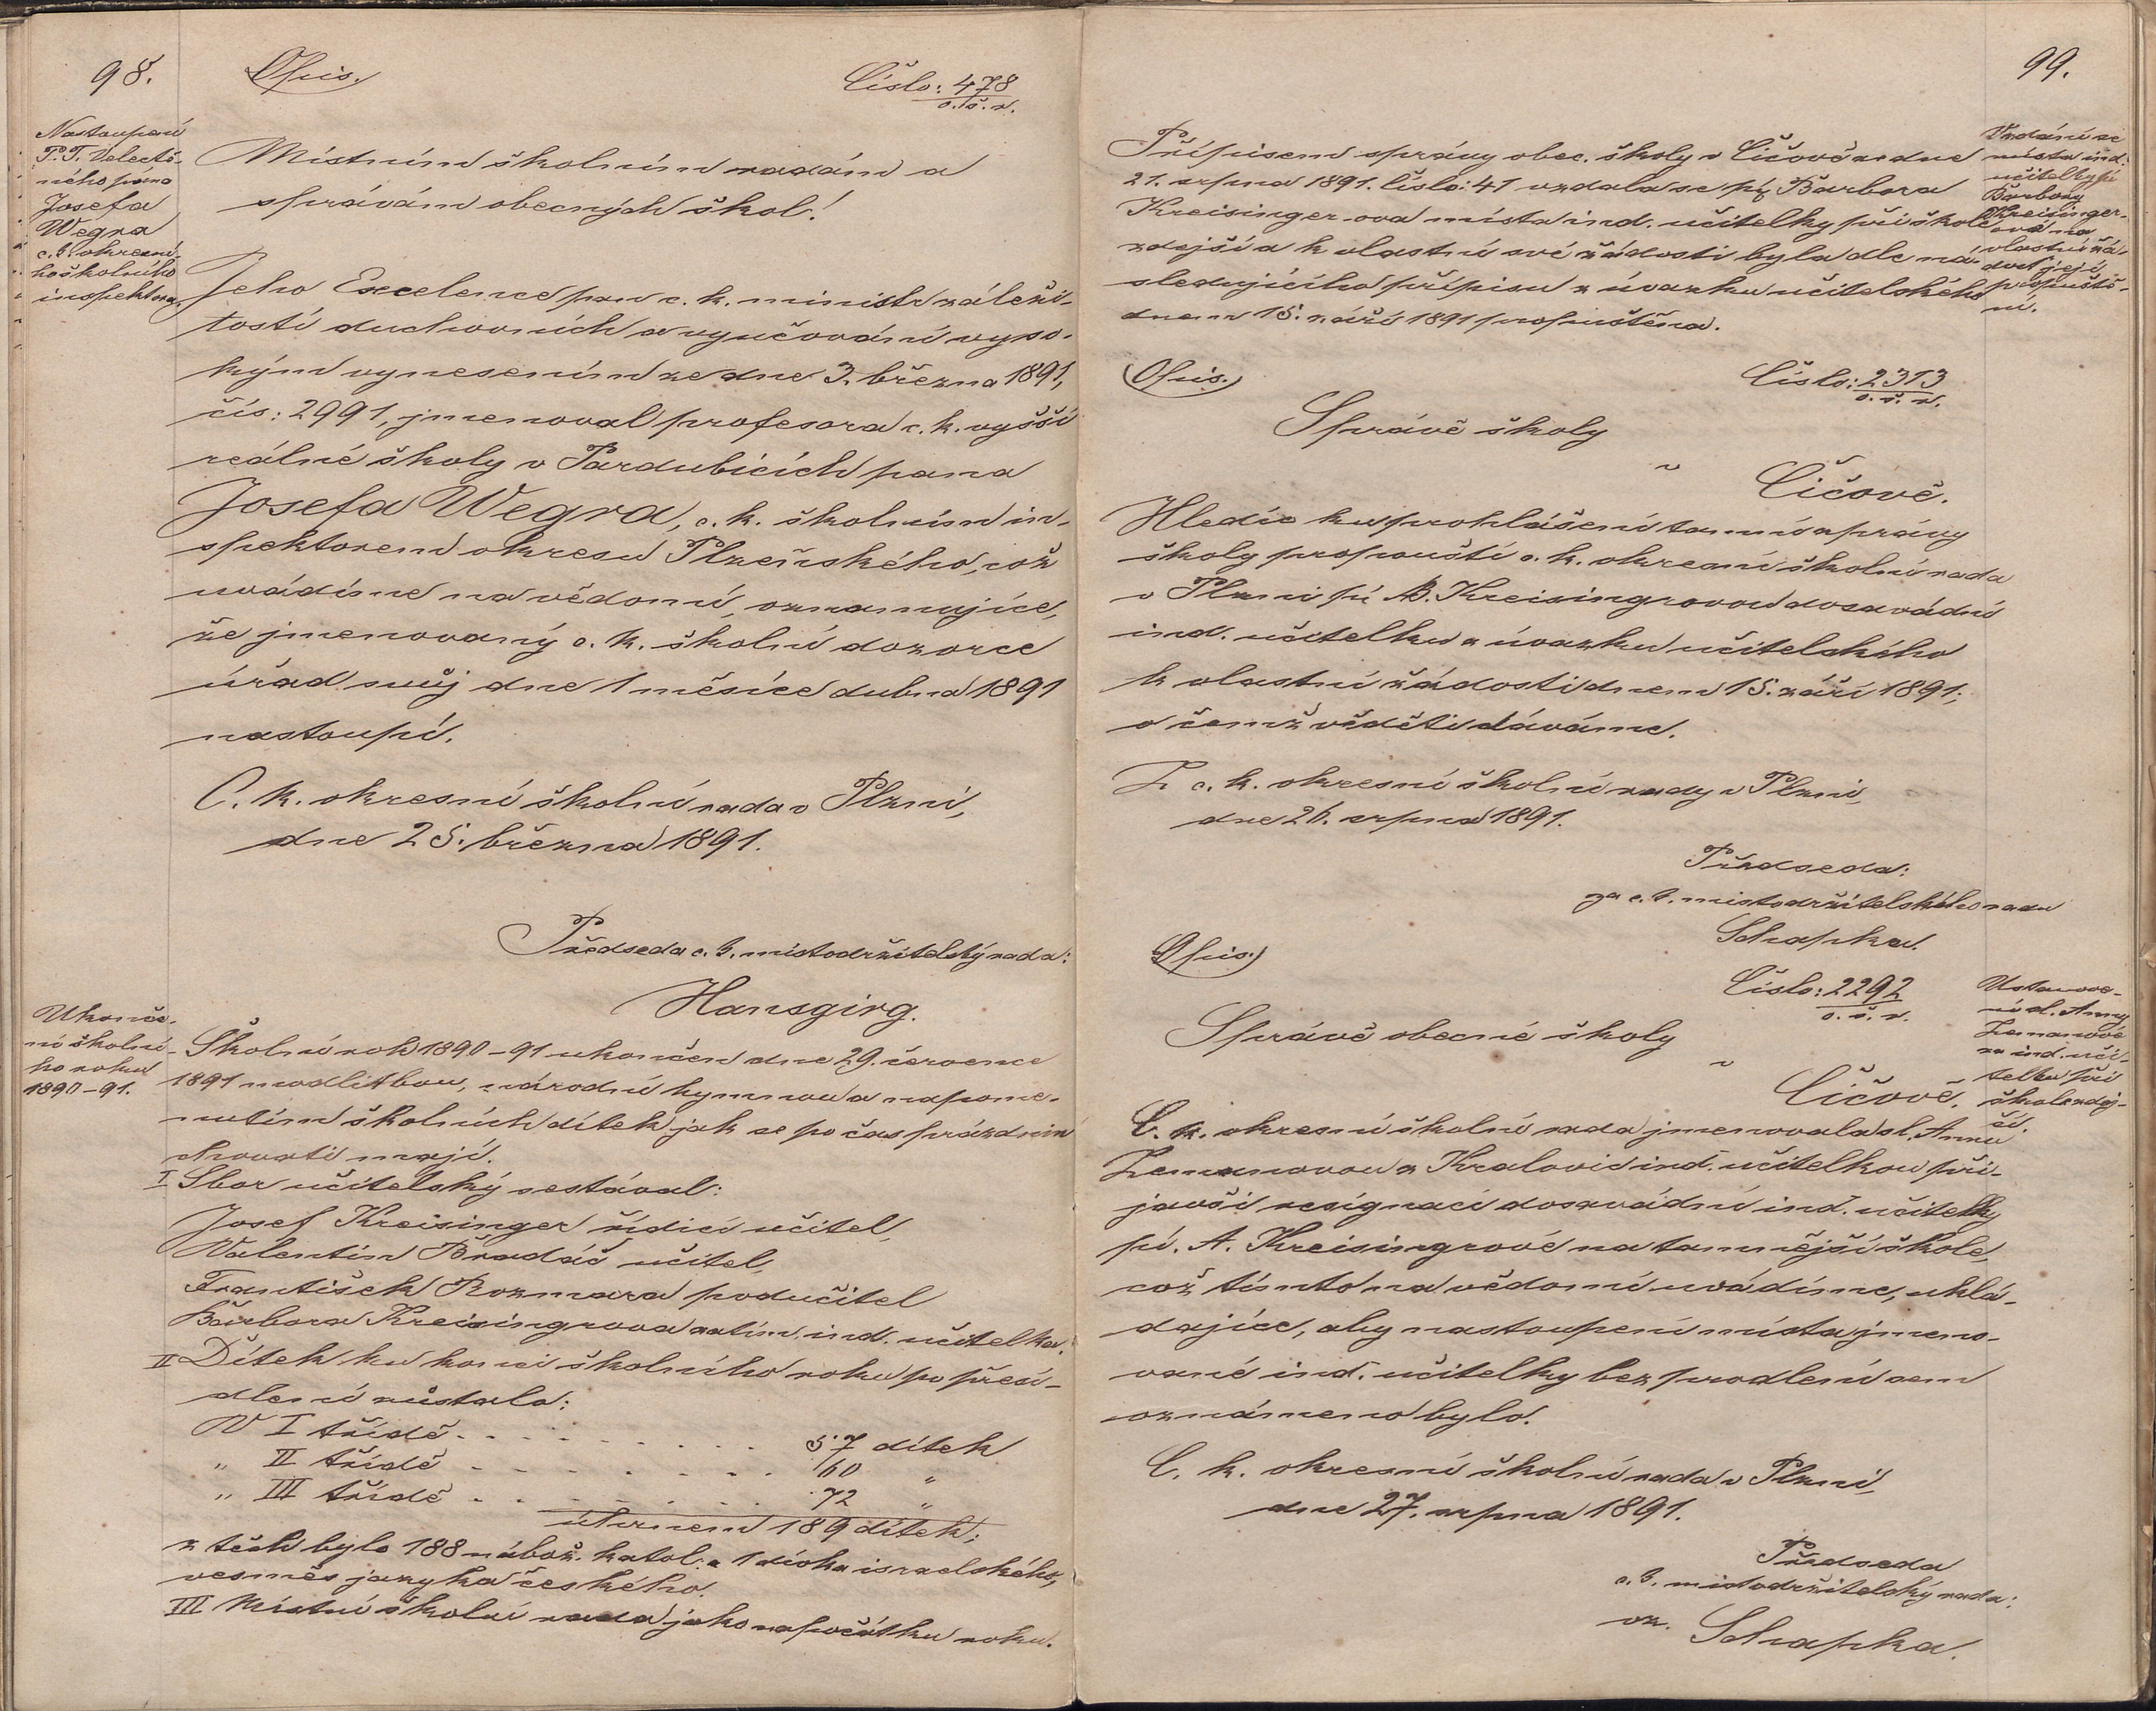 98.
Opis.
Číslo: 478
o. š. r.
Nastoupení
P. T. Velectě-
ného pána
Josefa
Wegra
c. k. okresní-
ho školního
inspektora.
Místním školním radám a
správám obecných škol!
Jeho Excelence pan c. k. ministr záleži-
tostí duchovních a vyučování vyso-
kým vynesením ze dne 3. března 1891,
čís: 2991, jmenoval profesora c. k. vyšší
reálné školy v Pardubicích pana
Josefa Wegra, c. k. školním in-
spektorem okresu Plzeňského, což
uvádíme na vědomí, oznamujíce,
že jmenovaný c. k. školní dozorce
úřad svůj dne 1 měsíce dubna 1891
nastoupí.
C. k. okresní školní rada v Plzni,
dne 25. března 1891.
Předseda c. k. místodržitelský rada:
Hansgirg.
Ukonče-
ní školní-
ho roku
1890-91.
Školní rok 1890-91 ukončen dne 29. července
1891 modlitbou, národní hymnou a napome-
nutím školních dítek jak se po čas prázdnin
chovati mají.
I Sbor učitelský sestával:
Josef Kreisinger řídící učitel,
Valentin Bradáč učitel,
František Rozmara podučitel
Barbora Kreisingrova zatím. ind. učitelka.
II Dítek ku konci školního roku po přesí-
dlení zůstalo:
V I třídě . . . . . . . . 57 dítek
" II třídě . . . . . . . . 60 "
" III třídě . . . . . . . . 72 "
úhrnem 189 dítek;
z těch bylo 188 nábož. katol. a 1 dívka israelského,
vesměs jazyka českého.
III Místní školní rada jako na počátku roku.
99.
Přípisem správy obec. školy v Čičově ze dne
21. srpna 1891. číslo: 41 vzdala se pí Barbora
Kreisingerova místa ind. učitelky při škole
zdejší a k vlastní své žádosti byla dle ná-
sledujícího přípisu z úvazku učitelského
dnem 15. září 1891 propuštěna.
Vzdání se
místa ind.
učitelky pí
Barbory
Kreisinger-
ová na
vlastní žá-
dost její
propuště-
ní.
Opis.
Číslo: 2313
o. š. r.
Správě školy
v
Čičově.
Hledíc ku prohlášení tamní správy
školy propouští c. k. okresní školní rada
v Plzni pí B. Kreisingrovou dosavádní
ind. učitelku z úvazku učitelského
k vlastní žádosti dnem 15. září 1891;
o čemž věděti dáváme.
Z c. k. okresní školní rady v Plzni,
dne 26. srpna 1891.
Předseda:
za c. k. místodržitelského radu
Schapka.
Opis.
Číslo: 2292
o. š. r.
Ustanove-
ní sl. Anny
Zemanové
za ind. uči-
telku při
škole zdej-
ší.
Správě obecné školy
v
Čičově.
C. k. okresní školní rada jmenovala sl. Annu
Zemanovou z Kralovic ind. učitelkou při-
javši resignaci dosavádní ind. učitelky
pí. A. Kreisingrové na tamnější škole,
což tímto na vědomí uvádíme, ukládajíce
dajíce, aby nastoupení místa jmeno-
vané ind. učitelky bez prodlení sem
oznámeno bylo.
C. k. okresní školní rada v Plzni,
dne 27. srpna 1891.
Předseda
c. k. místodržitelský rada:
vz. Schapka.